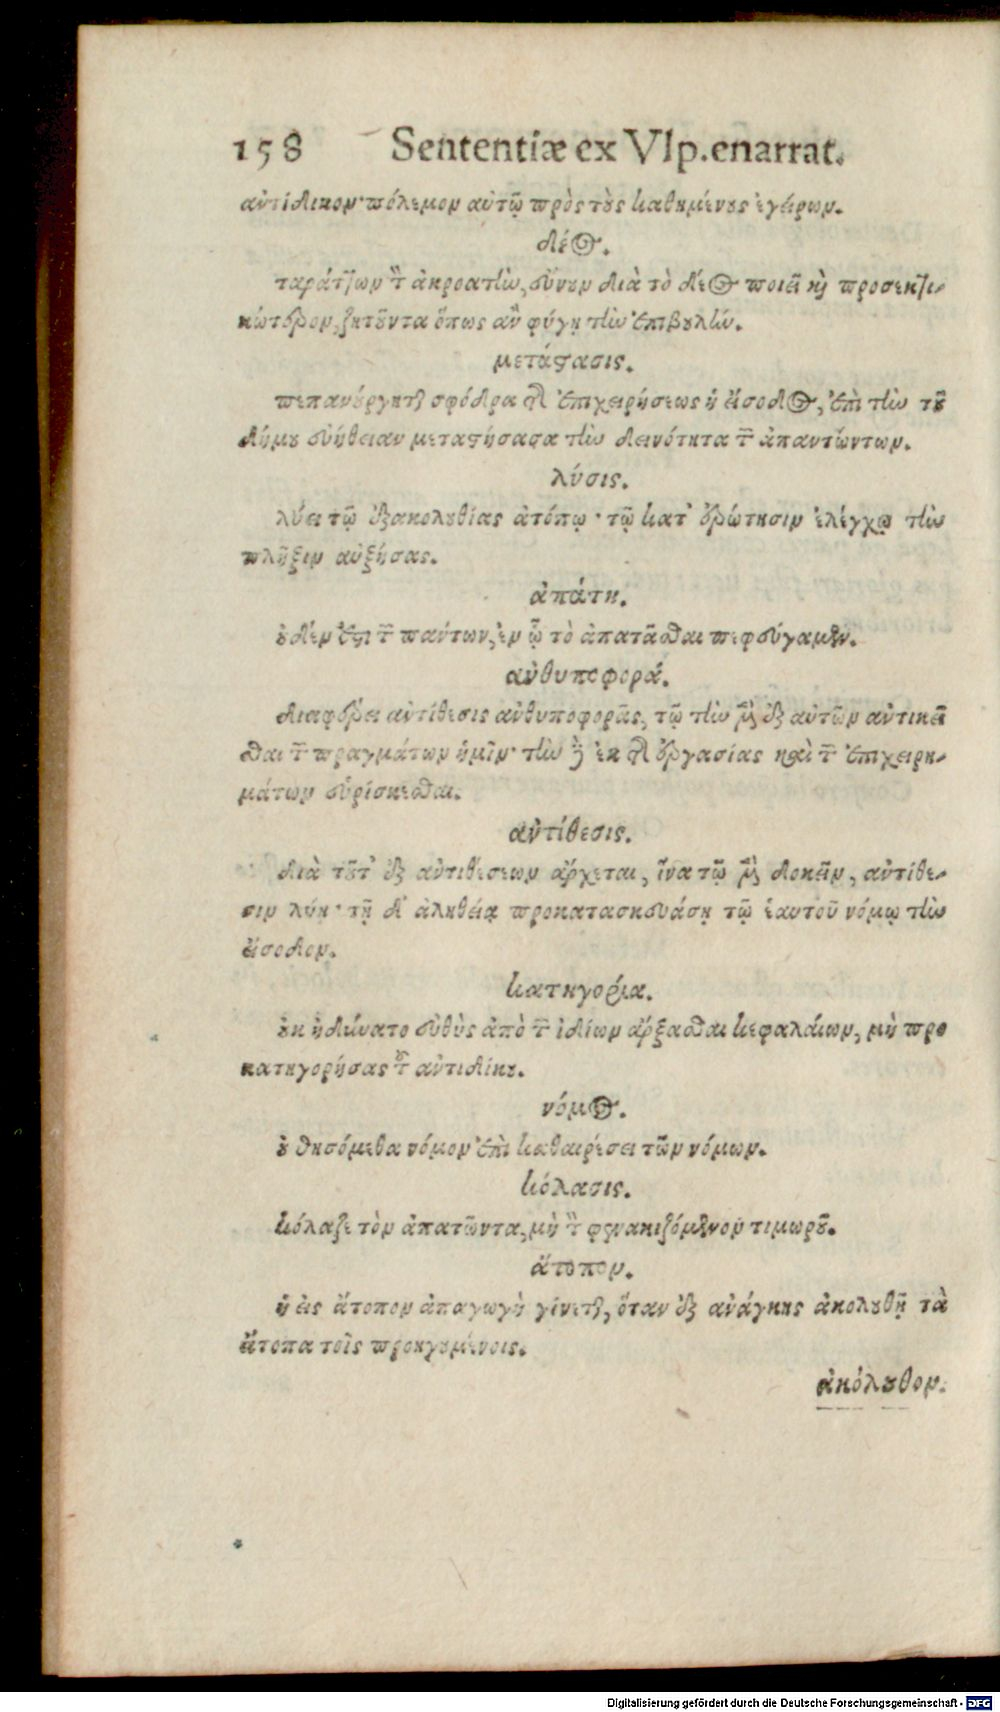 158 Sententiæ ex Vlp. enarrat.
ἀντίδικον· πόλεμον αὐτῷ πρὸς τοὺς καθημένους ἐγείρων.
δέος.
ταράττων τὸν ἀκροατὴν, σύνουν διὰ τὸ δέος ποιεῖ καὶ προσεκτι-
κώτερον, ζητοῦντα ὅπως ἂν φύγῃ τὴν ἐπιβουλήν.
μετάστασις.
πεπανούργηται σφόδρα τῆς ἐπιχειρήσεως ἡ εἴσοδος, ἐπὶ τὴν τοῦ
δήμου συνήθειαν μεταστήσασα τὴν δεινότητα τῶν ἀπαντώντων.
λύσις.
λύει τῷ ἐξακολουθίας ἀτόπῳ· τῷ κατ' ἐρώτησιν ἐλέγχῳ τὴν
πλῆξιν αὐξήσας.
ἀπάτη.
οὐδέν ἐστι τῶν πάντων, ἐν ᾧ τὸ ἀπατᾶσθαι πεφεύγαμεν.
ἀνθυποφορά.
διαφέρει ἀντίθεσις ἀνθυποφορᾶς, τῷ τὴν μὲν ἐξ αὐτῶν ἀντικεῖ
σθαι τῶν πραγμάτων ἡμῖν· τὴν δὲ ἐκ τῆς ἐργασίας καὶ τῶν ἐπιχειρη-
μάτων εὑρίσκεσθαι.
ἀντίθεσις.
διὰ τοῦτ' ἐξ ἀντιθέσεων ἄρχεται, ἵνα τῷ μὲν δοκεῖν, ἀντίθε-
σιν λύῃ· τῇ δ' ἀληθείᾳ προκατασκευάσῃ τῷ ἑαυτοῦ νόμῳ τὴν
εἴσοδον.
κατηγορία.
οὐκ ἠδύνατο εὐθὺς ἀπὸ τῶν ἰδίων ἄρξασθαι κεφαλαίων, μὴ προ
κατηγορήσας τοῦ ἀντιδίκου.
νόμος.
οὐ θησόμεθα νόμον ἐπὶ καθαιρέσει τῶν νόμων.
κόλασις.
κόλαζε τὸν ἀπατῶντα, μὴ τὸν φενακιζόμενον τιμωροῦ.
ἄτοπον.
ἡ εἰς ἄτοπον ἀπαγωγὴ γίνεται, ὅταν ἐξ ἀνάγκης ἀκολουθῇ τὰ
ἄτοπα τοῖς προηγουμένοις.
ἀκόλουθον.
Digitalisierung gefördert durch die Deutsche Forschungsgemeinschaft - DFG